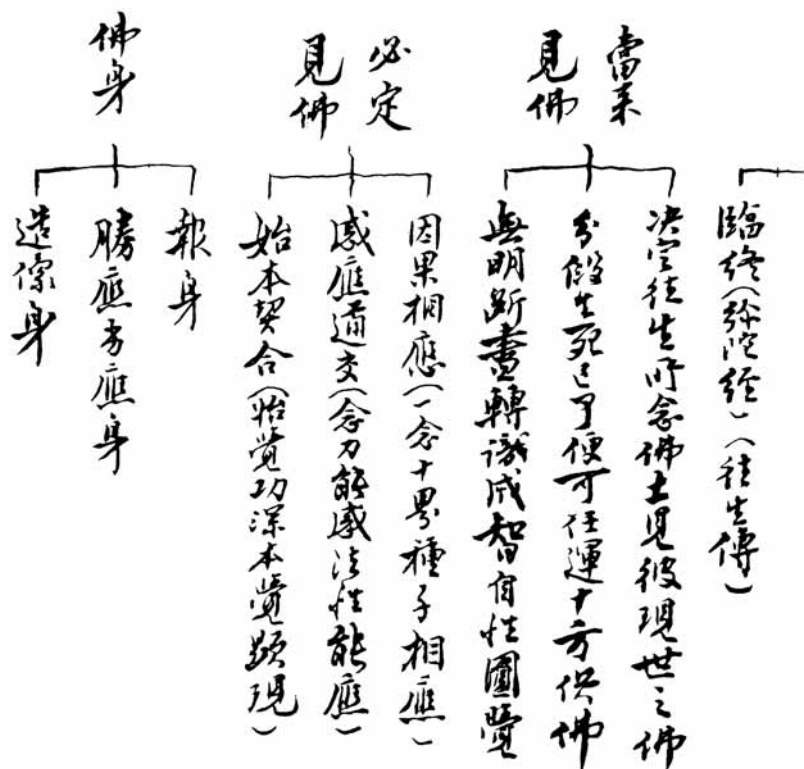 臨終（弥陀經）（往生傳）
當来
見佛
决定往生所念佛土見彼現世之佛
分段生死已了便可任運十方供佛
無明断盡轉識成智自性圓覺
必定
見佛
因果相應（一念十界種子相應）
感應道交（念力能感法性能應）
始本契合（始覺功深本覺顕現）
佛身
報身
勝應劣應身
造像身